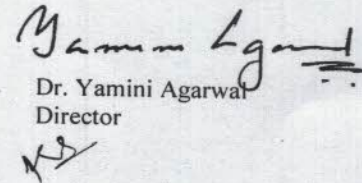 Yamini Agarwal
Dr. Yamini Agarwal
Director